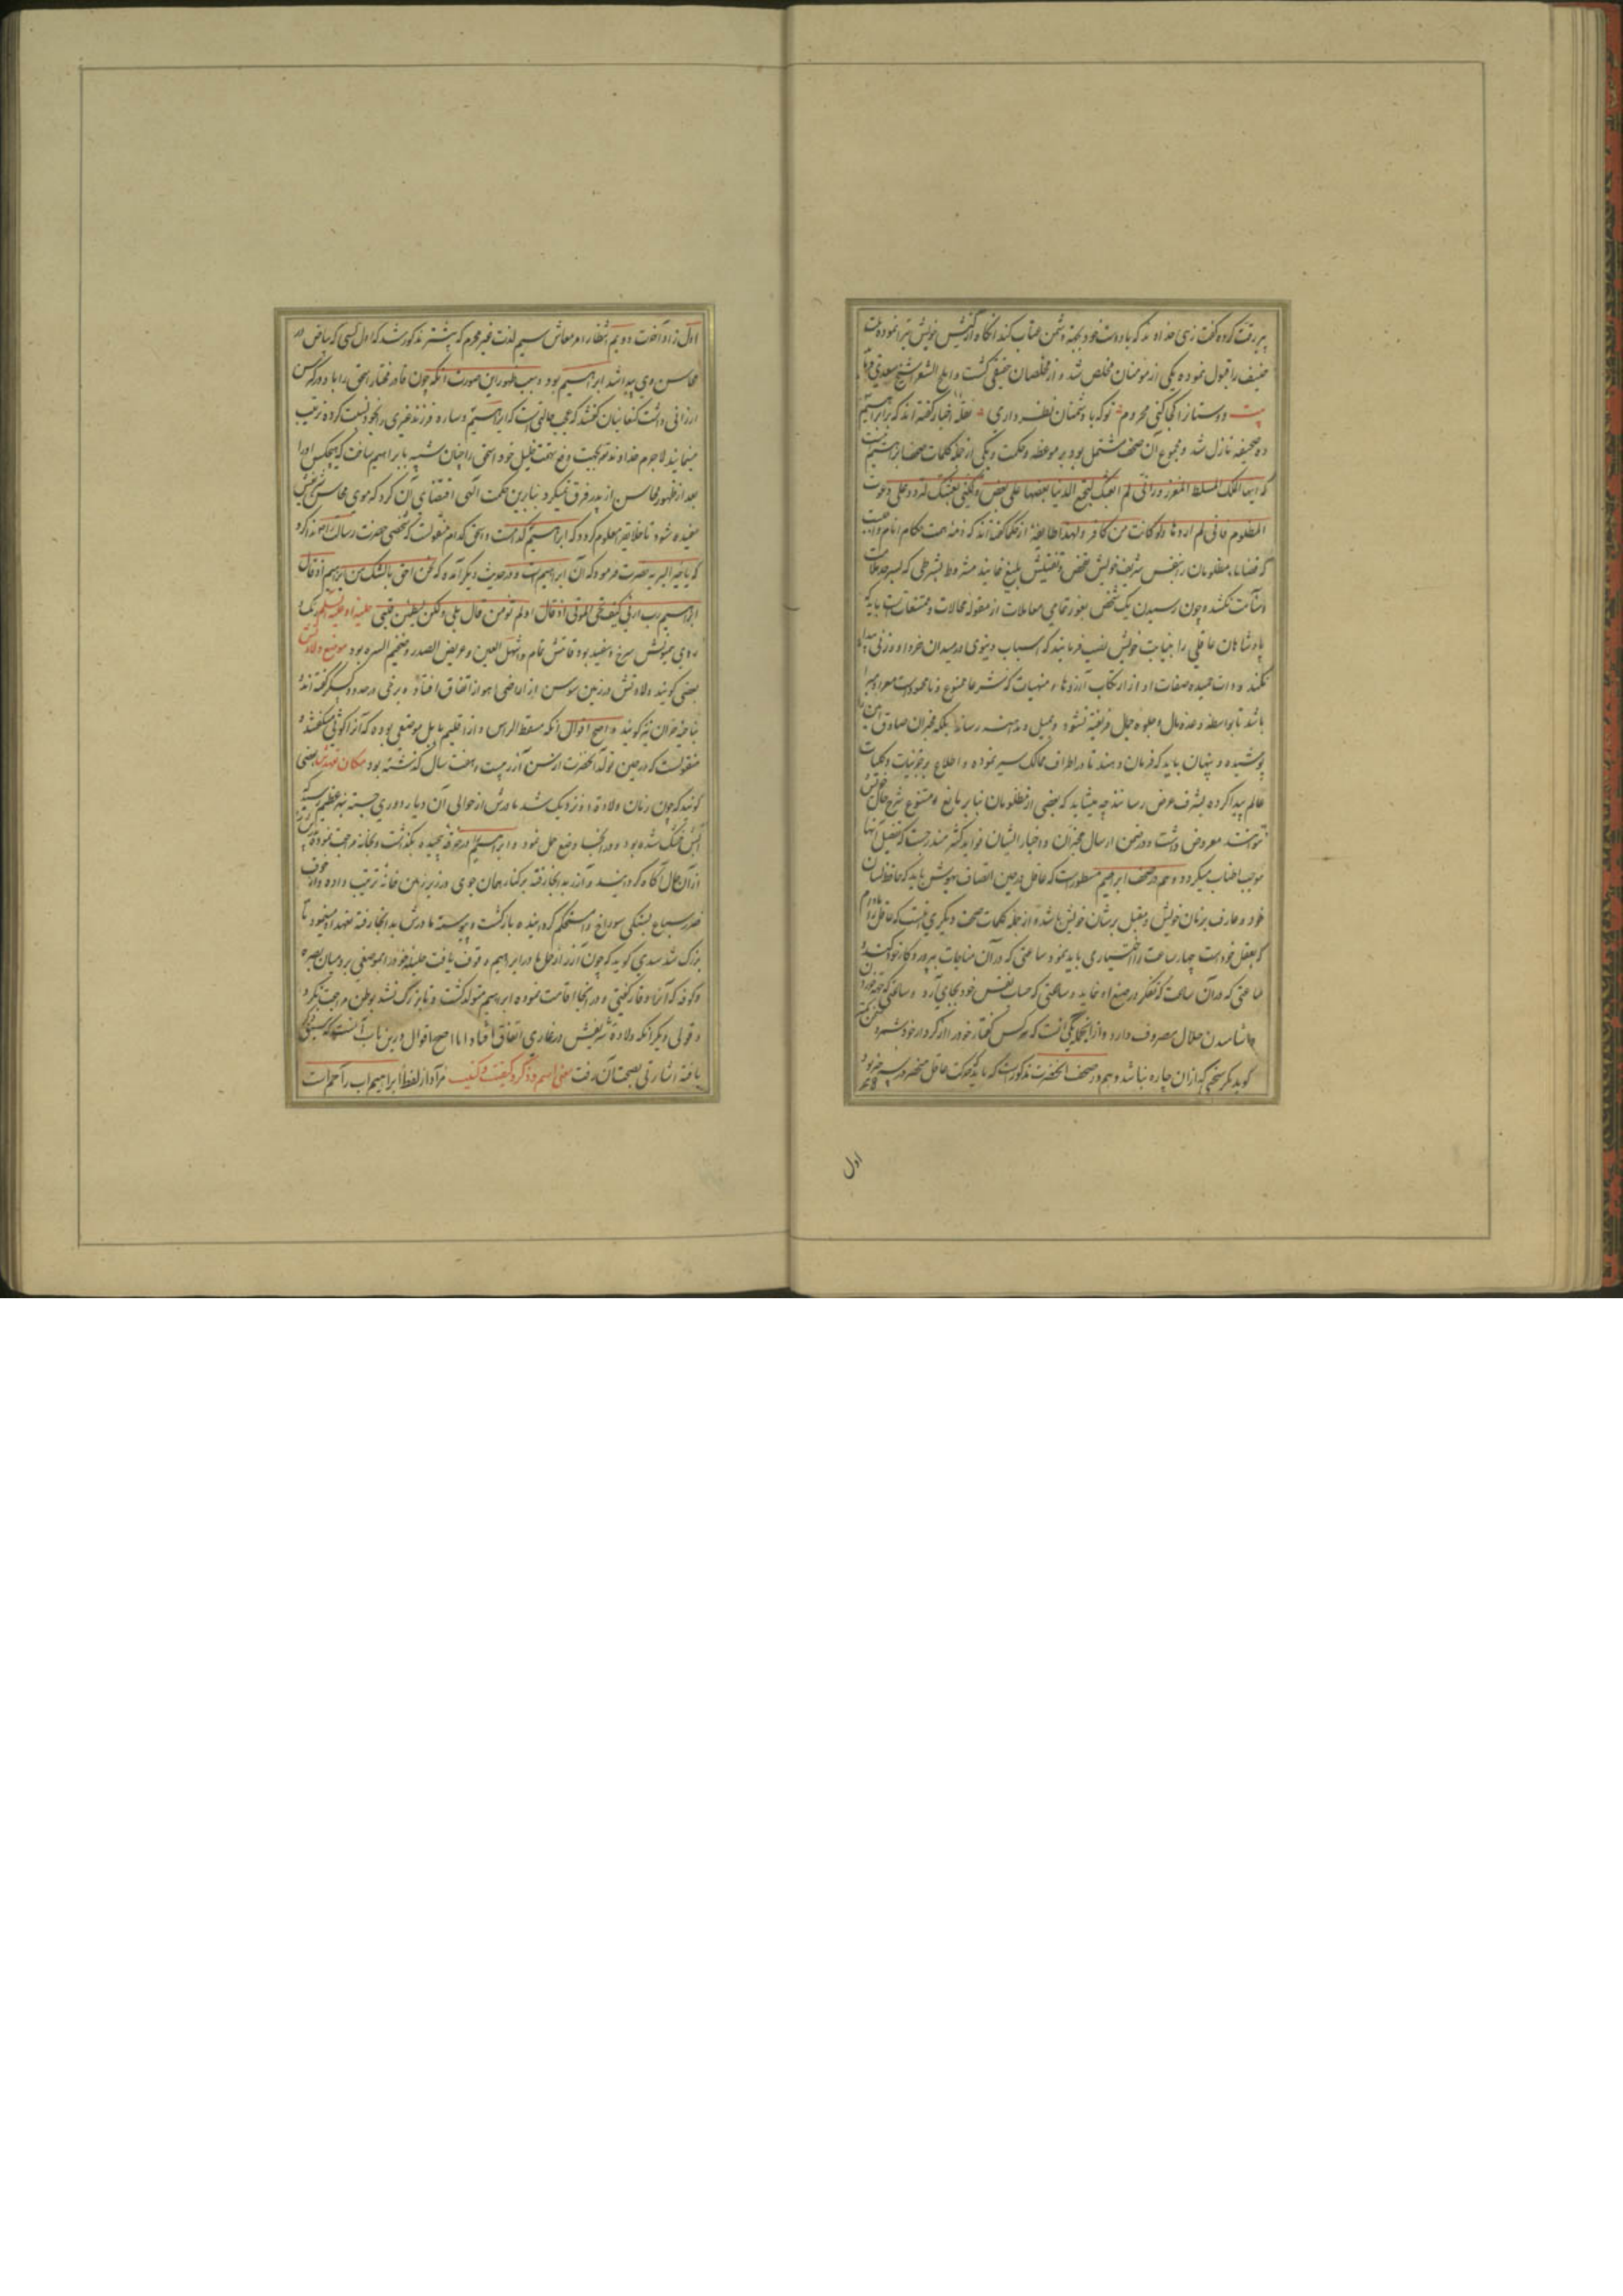 پیر رقت کرده گفت زهی خداوند که با دوست خود بجهة دشمن عتاب کند آنگاه از کیش خویش تبرا نموده ملت
حنیف را قبول نموده یکی از مومنان مخلص شد و از مخلصان حقیقی گشت و ابلغ الشعرا شیخ سعدی
بیت دوستان را کجا کنی محروم تو که با دشمنان نظر داری نقله اخبار گفته اند که بر ابراهیم
ده صحیفه نازل شد و مجموع آن صحف مشتمل بود بر موعظه و حکمت و یکی از جمله کلمات صحف ابراهیم
که ایها الملک المسلط المغرور انی لم ابعثک لتجمع الدنیا بعضها علی بعض ولکنی بعثتک لترد عنی دعوت
المظلوم فانی لم اردها ولو کانت من کافر ولهذا طایفه از حکما گفته اند که ذمه همت حکام انام واجب
که قضایاء مظلومان بنفس شریف خویش تفحص و تفتیش بلیغ نمایند مشروط بشرطی که بسرحد ملالت
وسآمت نکشد و چون رسیدن یک شخص بغور تمامی معاملات از مقوله محالات و ممتنعات است باید که
پادشاهان عاقلی را بنیابت خویش نصب فرمایند که اسباب دنیوی در میدان خرد او وزنی پیدا
نکند و ذات حمیده صفات او از ارتکاب آرزوها و منهیات که شرعا ممنوع و نامحمودست معرا و مبرا
باشد تا بواسطه وعده مال و جلوه جمال فریفته نشود و میل و مداهنه رساند بلکه مخبران صادق امین
پوشیده و پنهان باید که فرمان دهند تا در اطراف ممالک سیر نموده و اطلاع بر جزئیات و کلیات
عالم پیدا کرده بشرف عرض رسانند چه میشاید که بعضی از مظلومان بنا بر مانع و ممتنع شرح حال خویش
نتوانند معروض داشت و در ضمن ارسال مخبران و اخبار ایشان فواید کثیر مندرجست که تفصیل آنها
موجب اطناب میگردد و هم در صحف ابراهیم مسطورست که عاقل در حین اتصاف بهوش باید که حافظ لسان
خود و عارف بزمان خویش و مقبل بر شان خویش باشد و از جمله کلمات صحف دیگری اینست که عاقل را مادام
که بعقل خودست چهار ساعت را اختیاری باید نمود ساعتی که در آن مناجات بپروردکار خود کند و
ساعتی که در آن ساعت که تفکر در صنع او نماید و ساعتی که حساب نفس خود بجای آرد و ساعتی که جهة خوردن
و آشامیدن حلال مصروف دارد و از آنجا یکی آنست که هر کس گفتار خود را از کردار خود شمرد سخن کمتر
گوید مگر سخنی که از آن چاره نباشد و هم در صحف آنحضرت مذکورست که باید که حرکت عاقل منحصر در سه چیز بود
اول
اول زاد آخرت دویم انتظار امر معاش سیم لذت غیر محرم که پیشتر مذکور شد که اول کسی که بیاض در
محاسن وی پیدا شد ابراهیم بود و سبب ظهور این صورت آنکه چون قادر مختار اسحق را با و در کبر سن
ارزانی داشت کنعانیان گفتند که عجب حالتی است که ابراهیم و ساره فرزند غیری را بخود نسبت کرده تربیت
مینمایند لاجرم خداوند تعالی بجهت دفع تهمت خلیل خود اسحق را چنان شبیه بابراهیم ساخت که هیچکس او را
بعد از ظهور محاسن از پدر فرق نمیکرد بنابرین حکمت الهی اقتضای آن کرد که موی محاسن شریفش
سفید شود تا خلایق را معلوم گردد که ابراهیم کدامست و اسحق کدام منقولست که شخصی حضرت رسالت را ندا کرد
که یا خیر البریه حضرت فرمود که آن ابراهیم است و در حدیث دیگر آمده که نحن احق بالشک من ابراهیم اذ قال
ابراهیم رب ارنی کیف تحی الموتی اذ قال اولم تؤمن قال بلی ولکن لیطمئن قلبی حلیه او علیه السلم رنگ
روی مبارکش سرخ و سفید بود قامتش تمام و اشهل العین و عریض الصدر و ضخیم السره بود موضع ولادتش
بعضی گویند ولادتش در زمین سوس از اراضی اهواز اتفاق افتاد و برخی در حدود کسکر گفته اند و
بناحیه حران نیز گویند و اصح اقوال آنکه مسقط الراس وی از اقلیم بابل موضعی بوده که آنرا کوثی میگفتند و
منقولست که در حین تولد آنحضرت از سن آزر بیست و هفت سال گذشته بود مکان تعهد بعضی
گویند که چون زمان ولادت او نزدیک شد مادرش از حوالی آن دیار دوری جسته بنهر عظیم رسید که
آبش خشک شده بود و در آنجا وضع حمل نمود و ابراهیم را در خرقه پیچیده بگذاشت و بخانه مراجعت نموده
از آن حال آگاه گردانید و آزر بدانجا رفته بر کنار همان جوی در زیر زمین خانه ترتیب داده و از خوف
ضرر سباع بسنگی سوراخ را مستحکم گردانیده بازگشت و پیوسته مادرش بدانجا رفته تعهد او مینمود تا
بزرگ شد سدی گوید که چون آزر از حمل مادر ابراهیم وقوف یافت حلیله خود را بموضعی بر د میان بصره
و کوفه که آنرا در گفتی و در آنجا اقامت نموده ابراهیم متولد گشت و تا بزرگ نشد بوطن مراجعت نکرد
و قولی دیگر آنکه ولادت شریفش در غاری اتفاق افتاد اما اصح اقوال درین باب آنست که سبقت
یافته اشارتی بصحت آن رفت معنی اسم و ذکر و کیفیت و کنیت مراد از لفظ ابراهیم اب راحم است